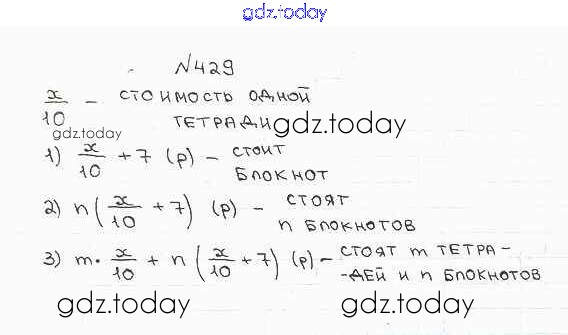 gdz.today
№429
x/10 - СТОИМОСТЬ ОДНОЙ
ТЕТРАДИ
gdz.today
gdz.today
1) x/10 + 7 (р) - СТОИТ
БЛОКНОТ
2) n(x/10 + 7) (р) - СТОЯТ
n БЛОКНОТОВ
3) m·x/10 + n(x/10 + 7) (р) - СТОЯТ m ТЕТРА-
-ДЕЙ И n БЛОКНОТОВ
gdz.today
gdz.today